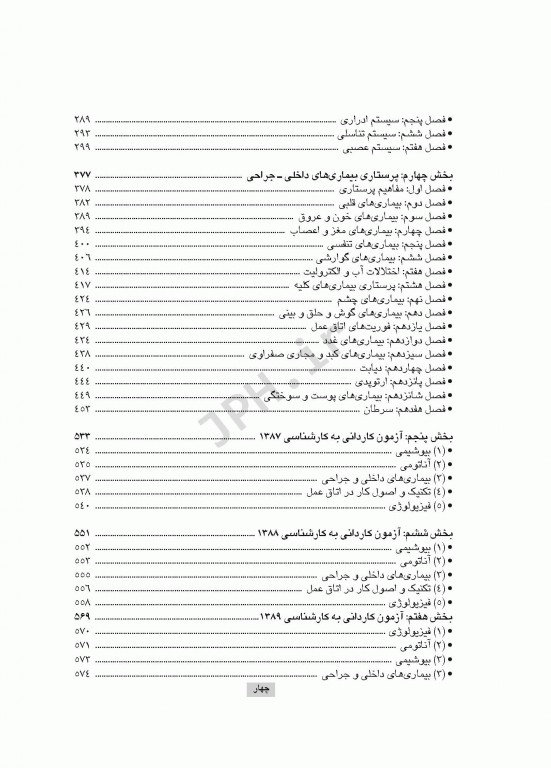 • فصل پنجم: سیستم ادراری ........ ۲۸۹
• فصل ششم: سیستم تناسلی ........ ۲۹۳
• فصل هفتم: سیستم عصبی ........ ۲۹۹
بخش چهارم: پرستاری بیماری‌های داخلی ـ جراحی ........ ۳۷۷
• فصل اول: مفاهیم پرستاری ........ ۳۷۸
• فصل دوم: بیماری‌های قلبی ........ ۳۸۲
• فصل سوم: بیماری‌های خون و عروق ........ ۳۸۹
• فصل چهارم: بیماری‌های مغز و اعصاب ........ ۳۹۴
• فصل پنجم: بیماری‌های تنفسی ........ ۴۰۰
• فصل ششم: بیماری‌های گوارشی ........ ۴۰۶
• فصل هفتم: اختلالات آب و الکترولیت ........ ۴۱۴
• فصل هشتم: پرستاری بیماری‌های کلیه ........ ۴۱۷
• فصل نهم: بیماری‌های چشم ........ ۴۲۴
• فصل دهم: بیماری‌های گوش و حلق و بینی ........ ۴۲۶
• فصل یازدهم: فوریت‌های اتاق عمل ........ ۴۲۹
• فصل دوازدهم: بیماری‌های غدد ........ ۴۳۴
• فصل سیزدهم: بیماری‌های کبد و مجاری صفراوی ........ ۴۳۸
• فصل چهاردهم: دیابت ........ ۴۴۰
• فصل پانزدهم: ارتوپدی ........ ۴۴۴
• فصل شانزدهم: بیماری‌های پوست و سوختگی ........ ۴۴۹
• فصل هفدهم: سرطان ........ ۴۵۳
بخش پنجم: آزمون کاردانی به کارشناسی ۱۳۸۷ ........ ۵۳۳
• (۱) بیوشیمی ........ ۵۳۴
• (۲) آناتومی ........ ۵۳۵
• (۳) بیماری‌های داخلی و جراحی ........ ۵۳۷
• (۴) تکنیک و اصول کار در اتاق عمل ........ ۵۳۸
• (۵) فیزیولوژی ........ ۵۴۰
بخش ششم: آزمون کاردانی به کارشناسی ۱۳۸۸ ........ ۵۵۱
• (۱) بیوشیمی ........ ۵۵۲
• (۲) آناتومی ........ ۵۵۳
• (۳) بیماری‌های داخلی و جراحی ........ ۵۵۵
• (۴) تکنیک و اصول کار در اتاق عمل ........ ۵۵۶
• (۵) فیزیولوژی ........ ۵۵۸
بخش هفتم: آزمون کاردانی به کارشناسی ۱۳۸۹ ........ ۵۶۹
• (۱) فیزیولوژی ........ ۵۷۰
• (۲) آناتومی ........ ۵۷۱
• (۳) بیوشیمی ........ ۵۷۳
• (۳) بیماری‌های داخلی و جراحی ........ ۵۷۴
چهار
JPH.ir